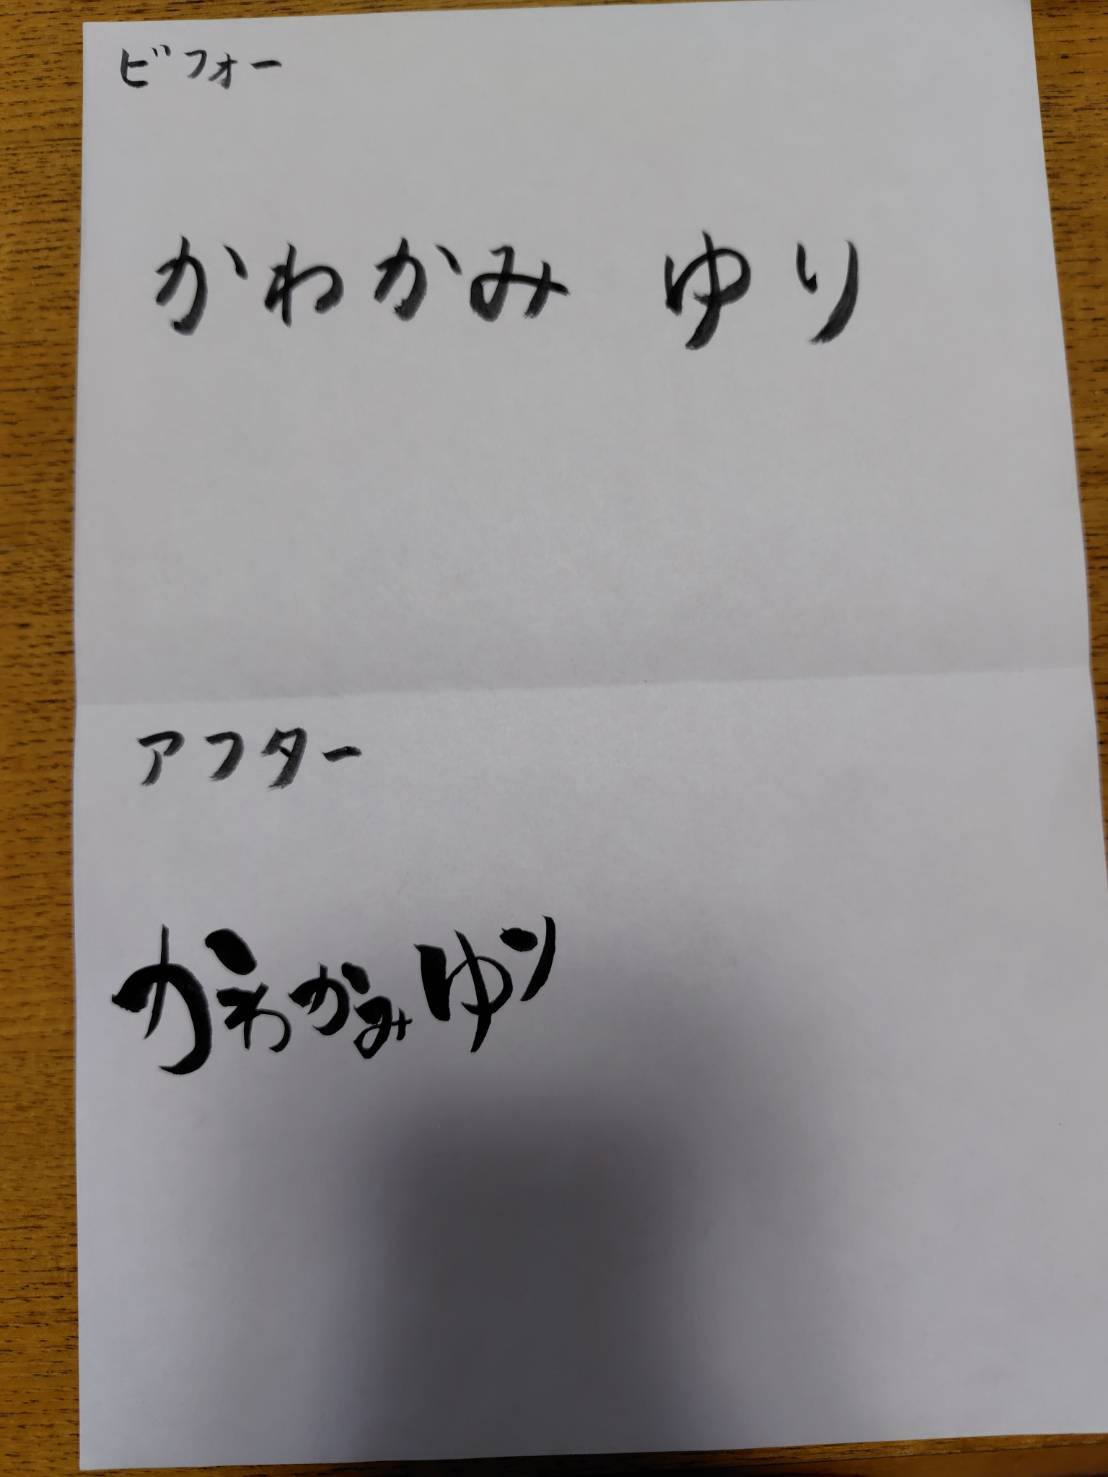 ビフォー
かわかみ ゆり
アフター
かわかみゆり